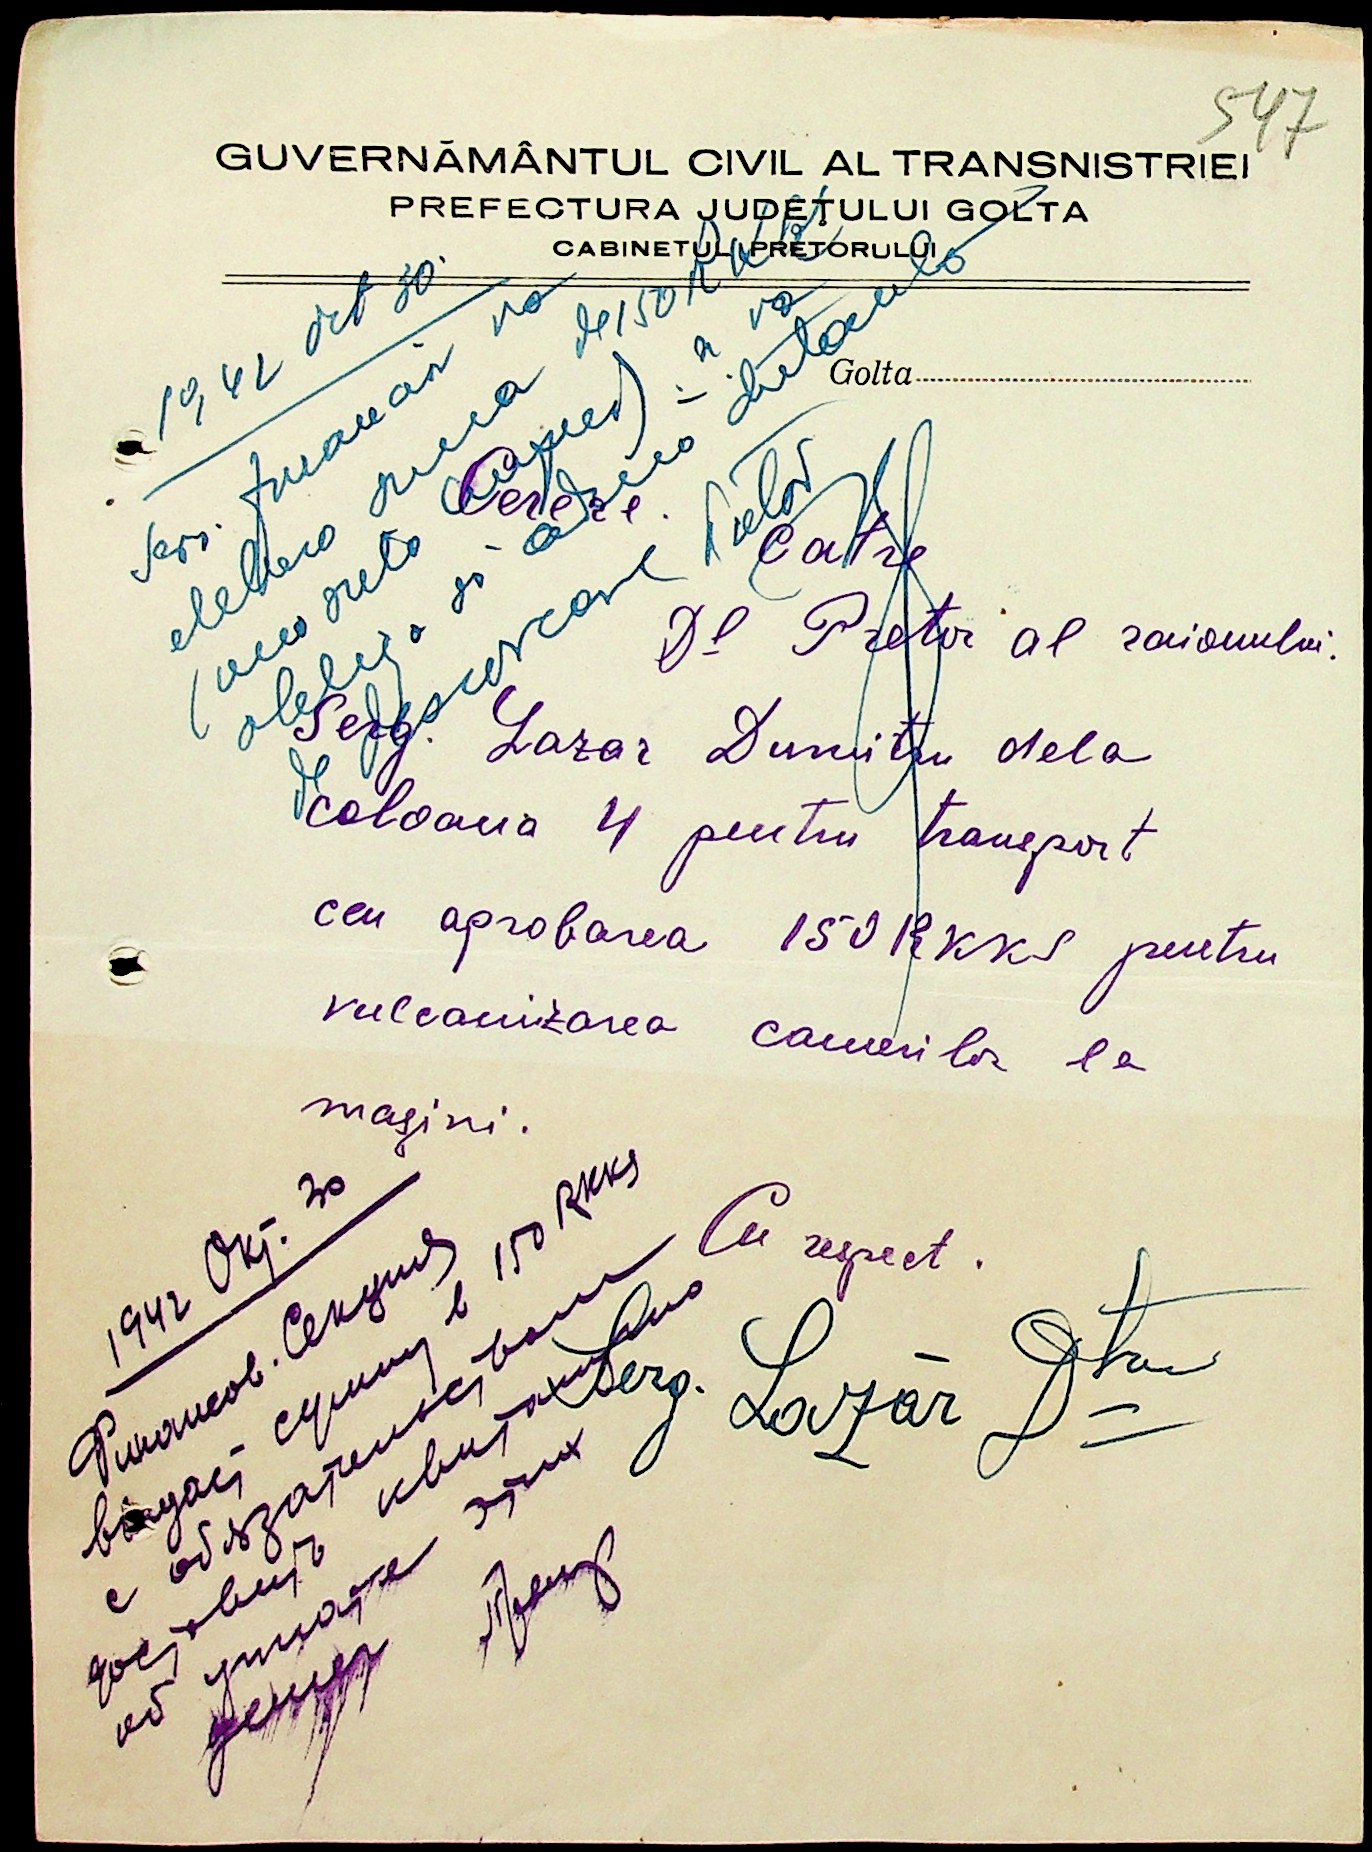 547
GUVERNĂMÂNTUL CIVIL AL TRANSNISTRIEI
PREFECTURA JUDEŢULUI GOLTA
CABINETUL PRETORULUI
Golta
1942 Oct 30.
Serv. financiar va
elebera suma de 150 RKKS
(una suta cincizeci) și va
obliga să aducă chetanță
de
Pretor
Cerere.
Catre
Dl Pretor al raionului.
Serg. Lazar Dumitru dela
coloana 4 pentru transport
cer aprobarea 150 RKKS pentru
vulcanizarea camerilor la
mașini.
Cu respect.
Serg. Lazăr Dtru
1942 Окт. 30
Финансов. Секция
выдаст сумму в 150 RKKS
с обязательством
доставить квитанцию
об уплате этих
денег